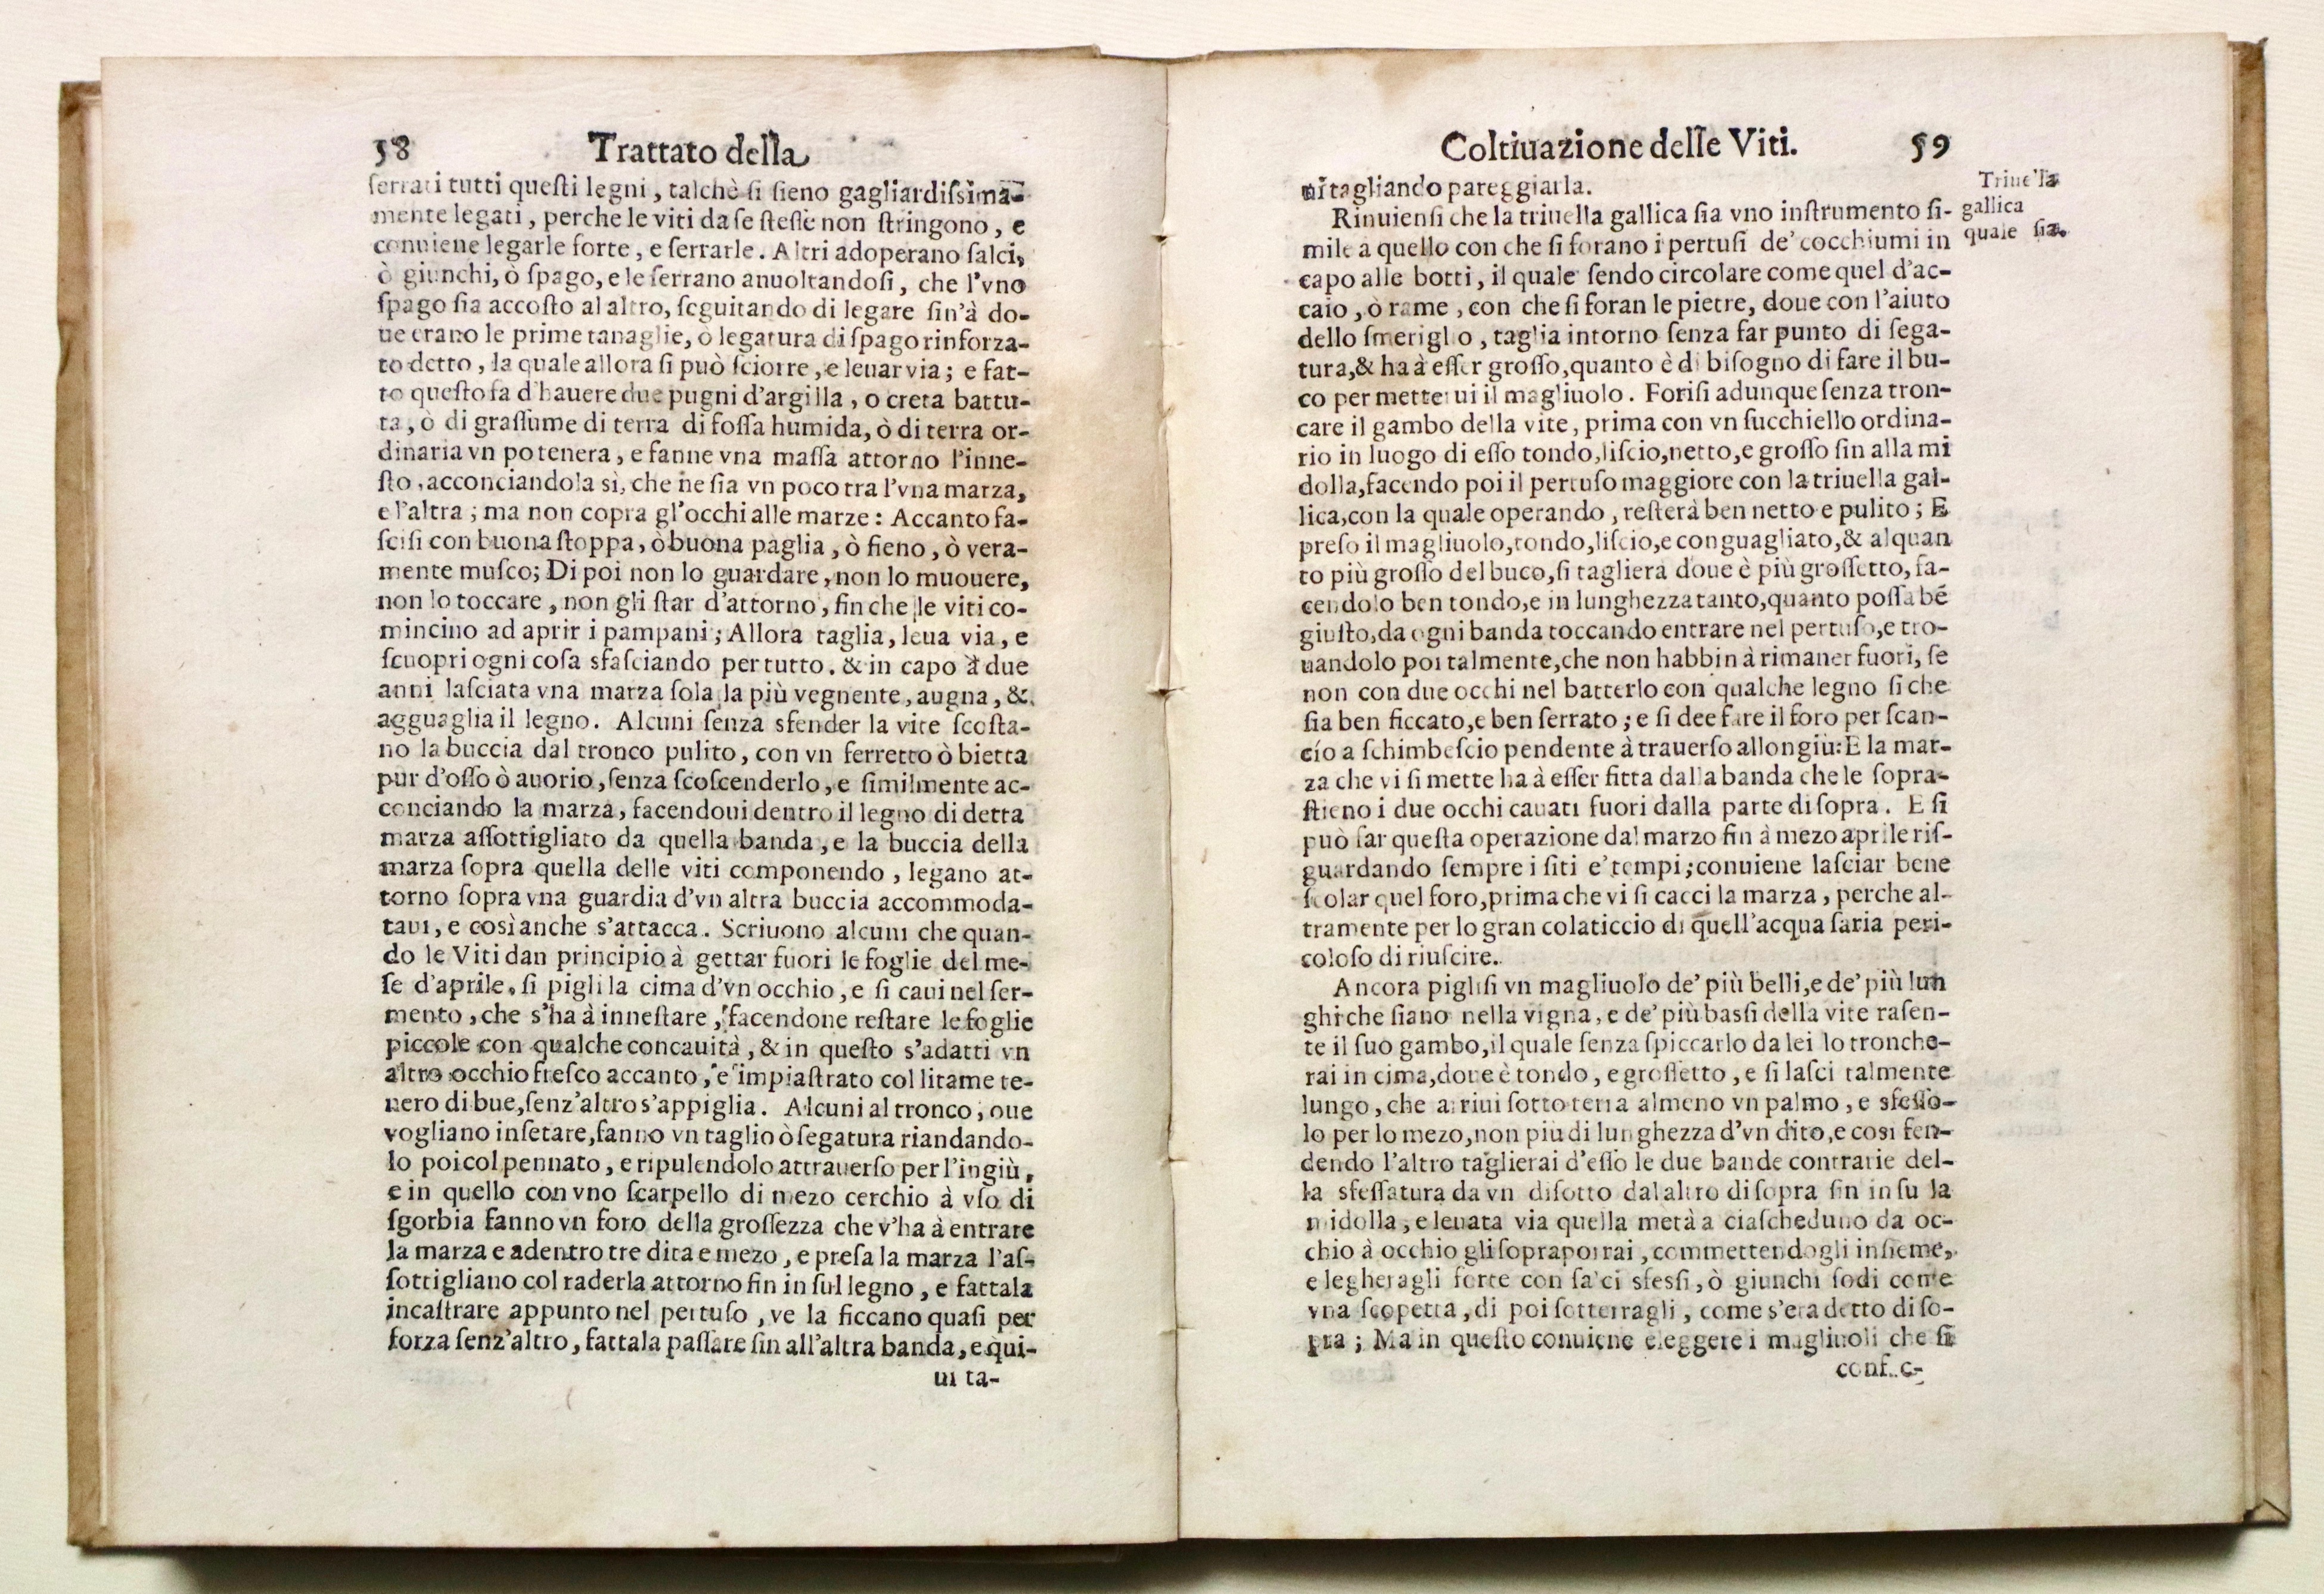 58 Trattato della
ſerrati tutti queſti legni, talchè ſi ſieno gagliardiſsima-
mente legati, perche le viti da ſe ſteſſe non ſtringono, e
conuiene legarle forte, e ſerrarle. Altri adoperano ſalci,
ò giunchi, ò ſpago, e le ſerrano anuoltandoſi, che l'vno
ſpago ſia accoſto al altro, ſeguitando di legare ſin'à do-
ue erano le prime tanaglie, o legatura di ſpago rinforza-
to detto, la quale allora ſi può ſciorre, e leuar via; e fat-
to queſto fa d'hauere due pugni d'argilla, o creta battu-
ta, ò di graſſume di terra di foſſa humida, ò di terra or-
dinaria vn po tenera, e fanne vna maſſa attorno l'inne-
ſto, acconciandola sì, che ne ſia vn poco tra l'vna marza,
e l'altra; ma non copra gl'occhi alle marze: Accanto fa-
ſciſi con buona ſtoppa, ò buona paglia, ò fieno, ò vera-
mente muſco; Di poi non lo guardare, non lo muouere,
non lo toccare, non gli ſtar d'attorno, fin che le viti co-
mincino ad aprir i pampani; Allora taglia, leua via, e
ſcuopri ogni coſa sfaſciando per tutto. & in capo à due
anni laſciata vna marza ſola la più vegnente, augna, &
agguaglia il legno. Alcuni ſenza sfender la vite ſcoſta-
no la buccia dal tronco pulito, con vn ferretto ò bietta
pur d'oſſo ò auorio, ſenza ſcoſcenderlo, e ſimilmente ac-
conciando la marza, facendoui dentro il legno di detta
marza aſſottigliato da quella banda, e la buccia della
marza ſopra quella delle viti componendo, legano at-
torno ſopra vna guardia d'vn altra buccia accommoda-
taui, e così anche s'attacca. Scriuono alcuni che quan-
do le Viti dan principio à gettar fuori le foglie del me-
ſe d'aprile, ſi pigli la cima d'vn occhio, e ſi caui nel ſer-
mento, che s'ha à inneſtare, facendone reſtare le foglie
piccole con qualche concauità, & in queſto s'adatti vn
altro occhio freſco accanto, e impiaſtrato col litame te-
nero di bue, ſenz'altro s'appiglia. Alcuni al tronco, oue
vogliano inſetare, fanno vn taglio ò ſegatura riandando-
lo poi col pennato, e ripulendolo attrauerſo per l'ingiù,
e in quello con vno ſcarpello di mezo cerchio à vſo di
ſgorbia fanno vn foro della groſſezza che v'ha à entrare
la marza e adentro tre dita e mezo, e preſa la marza l'aſ-
ſottigliano col raderla attorno fin in ſul legno, e fattala
incaſtrare appunto nel pertuſo, ve la ficcano quaſi per
forza ſenz'altro, fattala paſſare ſin all'altra banda, e qui-
ui ta-
Coltiuazione delle Viti. 59
ui tagliando pareggiarla.
Rinuienſi che la triuella gallica ſia vno inſtrumento ſi-
mile à quello con che ſi forano i pertuſi de' cocchiumi in
capo alle botti, il quale ſendo circolare come quel d'ac-
caio, ò rame, con che ſi foran le pietre, doue con l'aiuto
dello ſmeriglio, taglia intorno ſenza far punto di ſega-
tura, & ha à eſſer groſſo, quanto è di biſogno di fare il bu-
co per metterui il magliuolo. Foriſi adunque ſenza tron-
care il gambo della vite, prima con vn ſucchiello ordina-
rio in luogo di eſſo tondo, liſcio, netto, e groſſo ſin alla mi
dolla, facendo poi il pertuſo maggiore con la triuella gal-
lica, con la quale operando, reſterà ben netto e pulito; E
preſo il magliuolo, tondo, liſcio, e conguagliato, & alquan
to più groſſo del buco, ſi taglierà doue è più groſſetto, fa-
cendolo ben tondo, e in lunghezza tanto, quanto poſſa bē
giuſto, da ogni banda toccando entrare nel pertuſo, e tro-
uandolo poi talmente, che non habbin à rimaner fuori, ſe
non con due occhi nel batterlo con qualche legno ſi che
ſia ben ficcato, e ben ſerrato; e ſi dee fare il foro per ſcan-
cío a ſchimbeſcio pendente à trauerſo allongiù: E la mar-
za che vi ſi mette ha à eſſer fitta dalla banda che le ſopra-
ſtieno i due occhi cauati fuori dalla parte di ſopra. E ſi
può far queſta operazione dal marzo fin à mezo aprile riſ-
guardando ſempre i ſiti e' tempi; conuiene laſciar bene
ſcolar quel foro, prima che vi ſi cacci la marza, perche al-
tramente per lo gran colaticcio di quell'acqua ſaria peri-
coloſo di riuſcire.
Ancora pigliſi vn magliuolo de' più belli, e de' più lun
ghi che ſiano nella vigna, e de' più baſsi della vite raſen-
te il ſuo gambo, il quale ſenza ſpiccarlo da lei lo tronche-
rai in cima, doue è tondo, e groſſetto, e ſi laſci talmente
lungo, che arriui ſotto terra almeno vn palmo, e sfeſſo-
lo per lo mezo, non più di lunghezza d'vn dito, e così fen-
dendo l'altro taglierai d'eſſo le due bande contrarie del-
la sfeſſatura da vn diſotto dal altro di ſopra ſin in ſu la
midolla, e leuata via quella metà a ciaſcheduno da oc-
chio à occhio gli ſoprapoirai, commettendogli inſieme,
e legheragli forte con ſalci sfeſsi, ò giunchi ſodi come
vna ſcopetta, di poi ſotterragli, come s'era detto di ſo-
pra; Ma in queſto conuiene eleggere i magliuoli che ſi
Triuella
gallica
quale ſia.